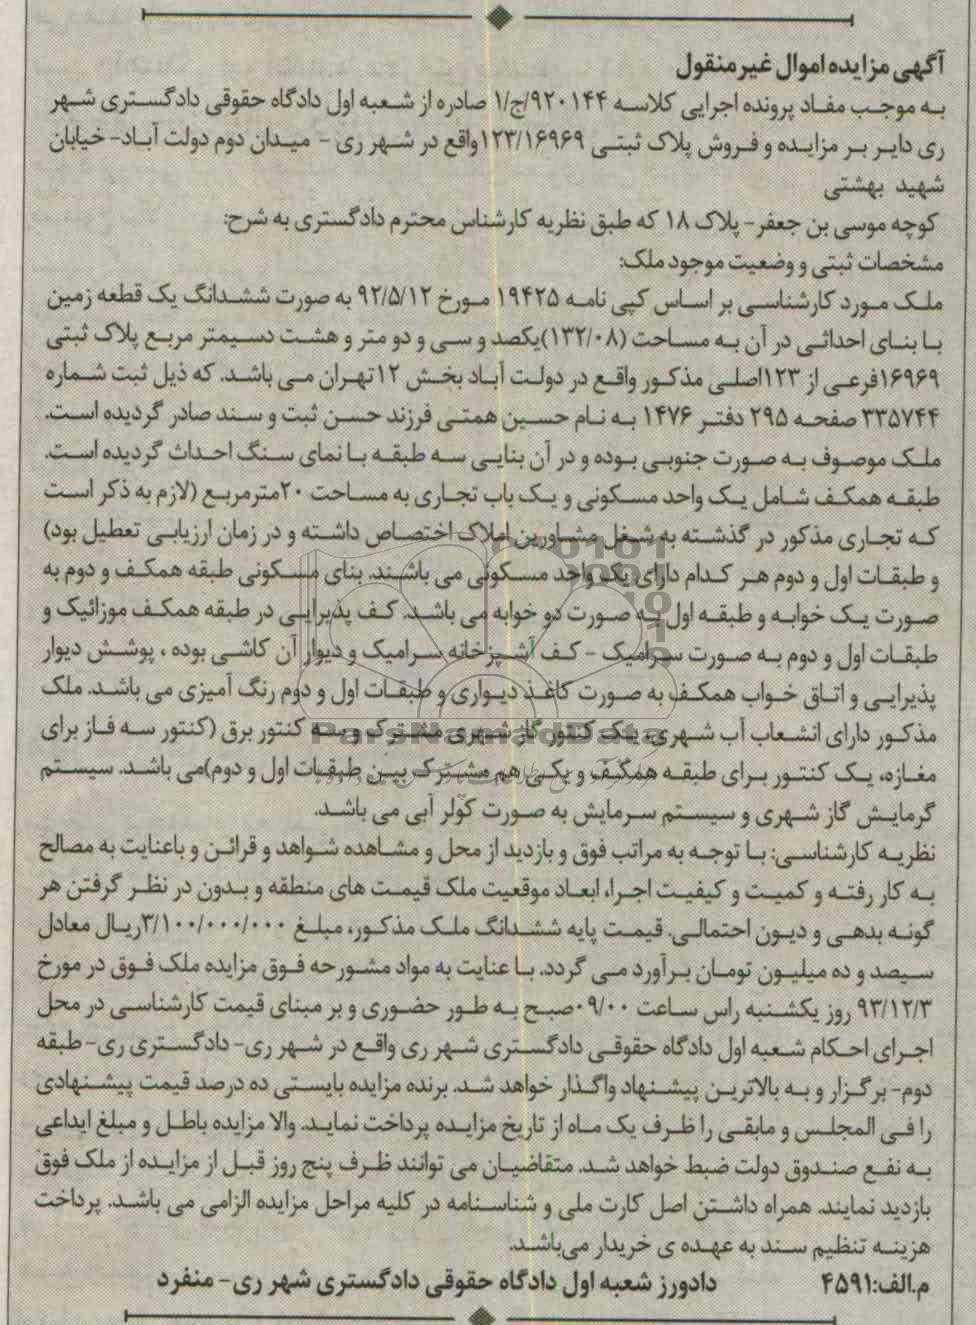 آگهی مزایده اموال غیر منقول
به موجب مفاد پرونده اجرایی کلاسه ۹۲۰۱۴۴/ج/۱ صادره از شعبه اول دادگاه حقوقی دادگستری شهر
ری دایر بر مزایده و فروش پلاک ثبتی ۱۲۳/۱۶۹۶۹واقع در شهر ری – میدان دوم دولت آباد- خیابان
شهید بهشتی
کوچه موسی بن جعفر- پلاک ۱۸ که طبق نظریه کارشناس محترم دادگستری به شرح:
مشخصات ثبتی و وضعیت موجود ملک:
ملک مورد کارشناسی بر اساس کپی نامه ۱۹۴۲۵ مورخ ۹۲/۵/۱۲ به صورت ششدانگ یک قطعه زمین
با بنای احداثی در آن به مساحت (۱۳۲/۰۸)یکصد و سی و دو متر و هشت دسیمتر مربع پلاک ثبتی
۱۶۹۶۹فرعی از ۱۲۳اصلی مذکور واقع در دولت آباد بخش ۱۲تهران می باشد. که ذیل ثبت شماره
۳۳۵۷۴۴ صفحه ۲۹۵ دفتر ۱۴۷۶ به نام حسین همتی فرزند حسن ثبت و سند صادر گردیده است.
ملک موصوف به صورت جنوبی بوده و در آن بنایی سه طبقه با نمای سنگ احداث گردیده است.
طبقه همکف شامل یک واحد مسکونی و یک باب تجاری به مساحت ۲۰مترمربع (لازم به ذکر است
که تجاری مذکور در گذشته به شغل مشاورین املاک اختصاص داشته و در زمان ارزیابی تعطیل بود)
و طبقات اول و دوم هر کدام دارای یک واحد مسکونی می باشند. بنای مسکونی طبقه همکف و دوم به
صورت یک خوابه و طبقه اول به صورت دو خوابه می باشد. کف پذیرایی در طبقه همکف موزائیک و
طبقات اول و دوم به صورت سرامیک – کف آشپزخانه سرامیک و دیوار آن کاشی بوده ، پوشش دیوار
پذیرایی و اتاق خواب همکف به صورت کاغذ دیواری و طبقات اول و دوم رنگ آمیزی می باشد. ملک
مذکور دارای انشعاب آب شهری، یک کنتور گاز شهری مشترک و سه کنتور برق (کنتور سه فاز برای
مغازه، یک کنتور برای طبقه همکف و یکی هم مشترک بین طبقات اول و دوم)می باشد. سیستم
گرمایش گاز شهری و سیستم سرمایش به صورت کولر آبی می باشد.
نظریه کارشناسی: با توجه به مراتب فوق و بازدید از محل و مشاهده شواهد و قرائن و باعنایت به مصالح
به کار رفته و کمیت و کیفیت اجرا، ابعاد موقعیت ملک قیمت های منطقه و بدون در نظر گرفتن هر
گونه بدهی و دیون احتمالی. قیمت پایه ششدانگ ملک مذکور، مبلغ ۳/۱۰۰/۰۰۰/۰۰۰ریال معادل
سیصد و ده میلیون تومان برآورد می گردد. با عنایت به مواد مشورحه فوق مزایده ملک فوق در مورخ
۹۳/۱۲/۳ روز یکشنبه راس ساعت ۰۹/۰۰صبح به طور حضوری و بر مبنای قیمت کارشناسی در محل
اجرای احکام شعبه اول دادگاه حقوقی دادگستری شهر ری واقع در شهر ری- دادگستری ری- طبقه
دوم- برگزار و به بالاترین پیشنهاد واگذار خواهد شد. برنده مزایده بایستی ده درصد قیمت پیشنهادی
را فی المجلس و مابقی را ظرف یک ماه از تاریخ مزایده پرداخت نماید. والا مزایده باطل و مبلغ ایداعی
به نفع صندوق دولت ضبط خواهد شد. متقاضیان می توانند ظرف پنج روز قبل از مزایده از ملک فوق
بازدید نمایند. همراه داشتن اصل کارت ملی و شناسنامه در کلیه مراحل مزایده الزامی می باشد. پرداخت
هزینه تنظیم سند به عهده ی خریدار می‌باشد.
م.الف:۴۵۹۱ دادورز شعبه اول دادگاه حقوقی دادگستری شهر ری- منفرد
ParsNamadData